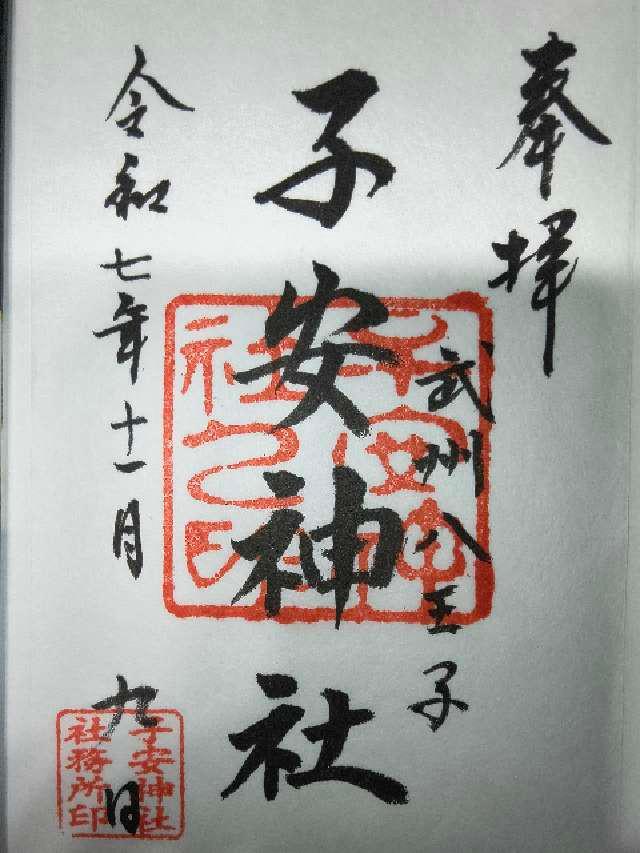 奉拝
武州八王子
子安神社
令和七年十一月九日
子安神社之印
子安神社
社務所印